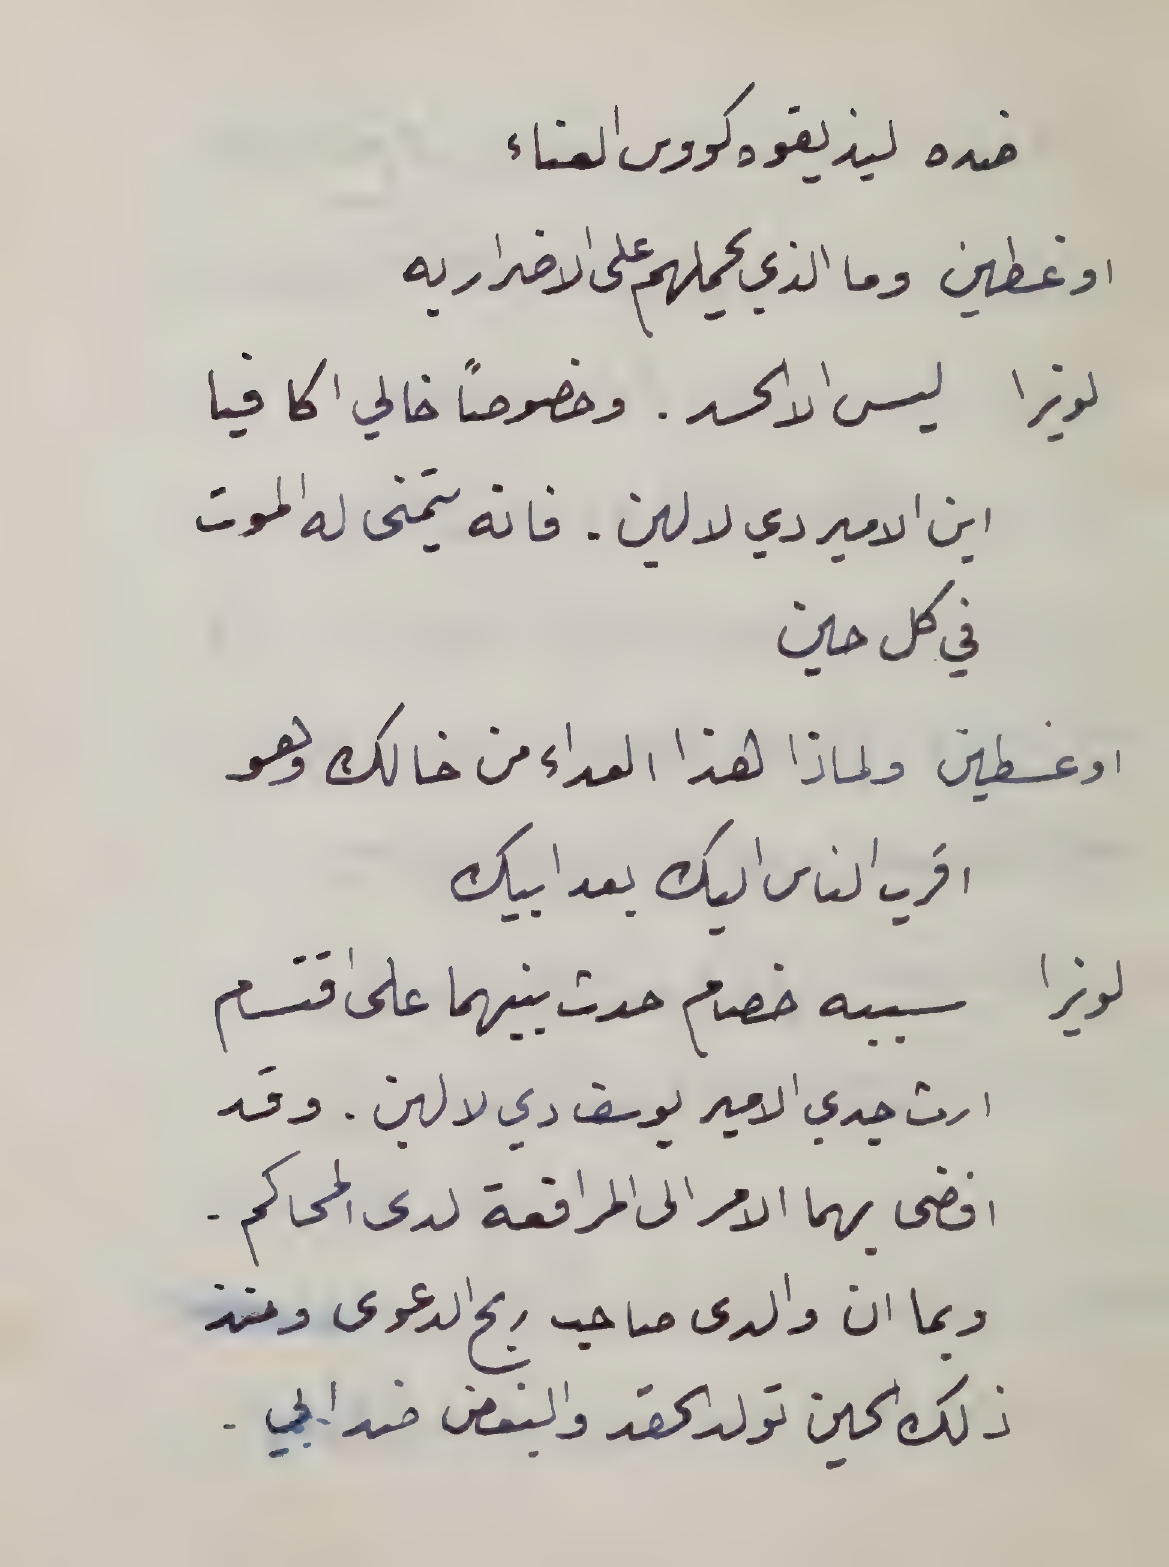 ضده ليذيقوه كووس العناء
اوغسطين وما الذي يحملهم على الاضرار به
لويزا ليس الا الحسد . وخصوصًا خالي اكافيا
ابن الامير دي لالين . فانه يتمنى له الموت
في كل حين
اوغسطين ولماذا هذا العداء من خالك وهو
اقرب الناس اليك بعد ابيك
لويزا سببه خصام حدث بينهما على اقتسام
ارث جدي الامير يوسف دي لالين . وقد
افضى بهما الامر الى المرافعة لدى المحاكم .
وبما ان والدى صاحب ربح الدعوى ومنذ
ذلك الحين تولد الحقد والبغض ضد ابي .